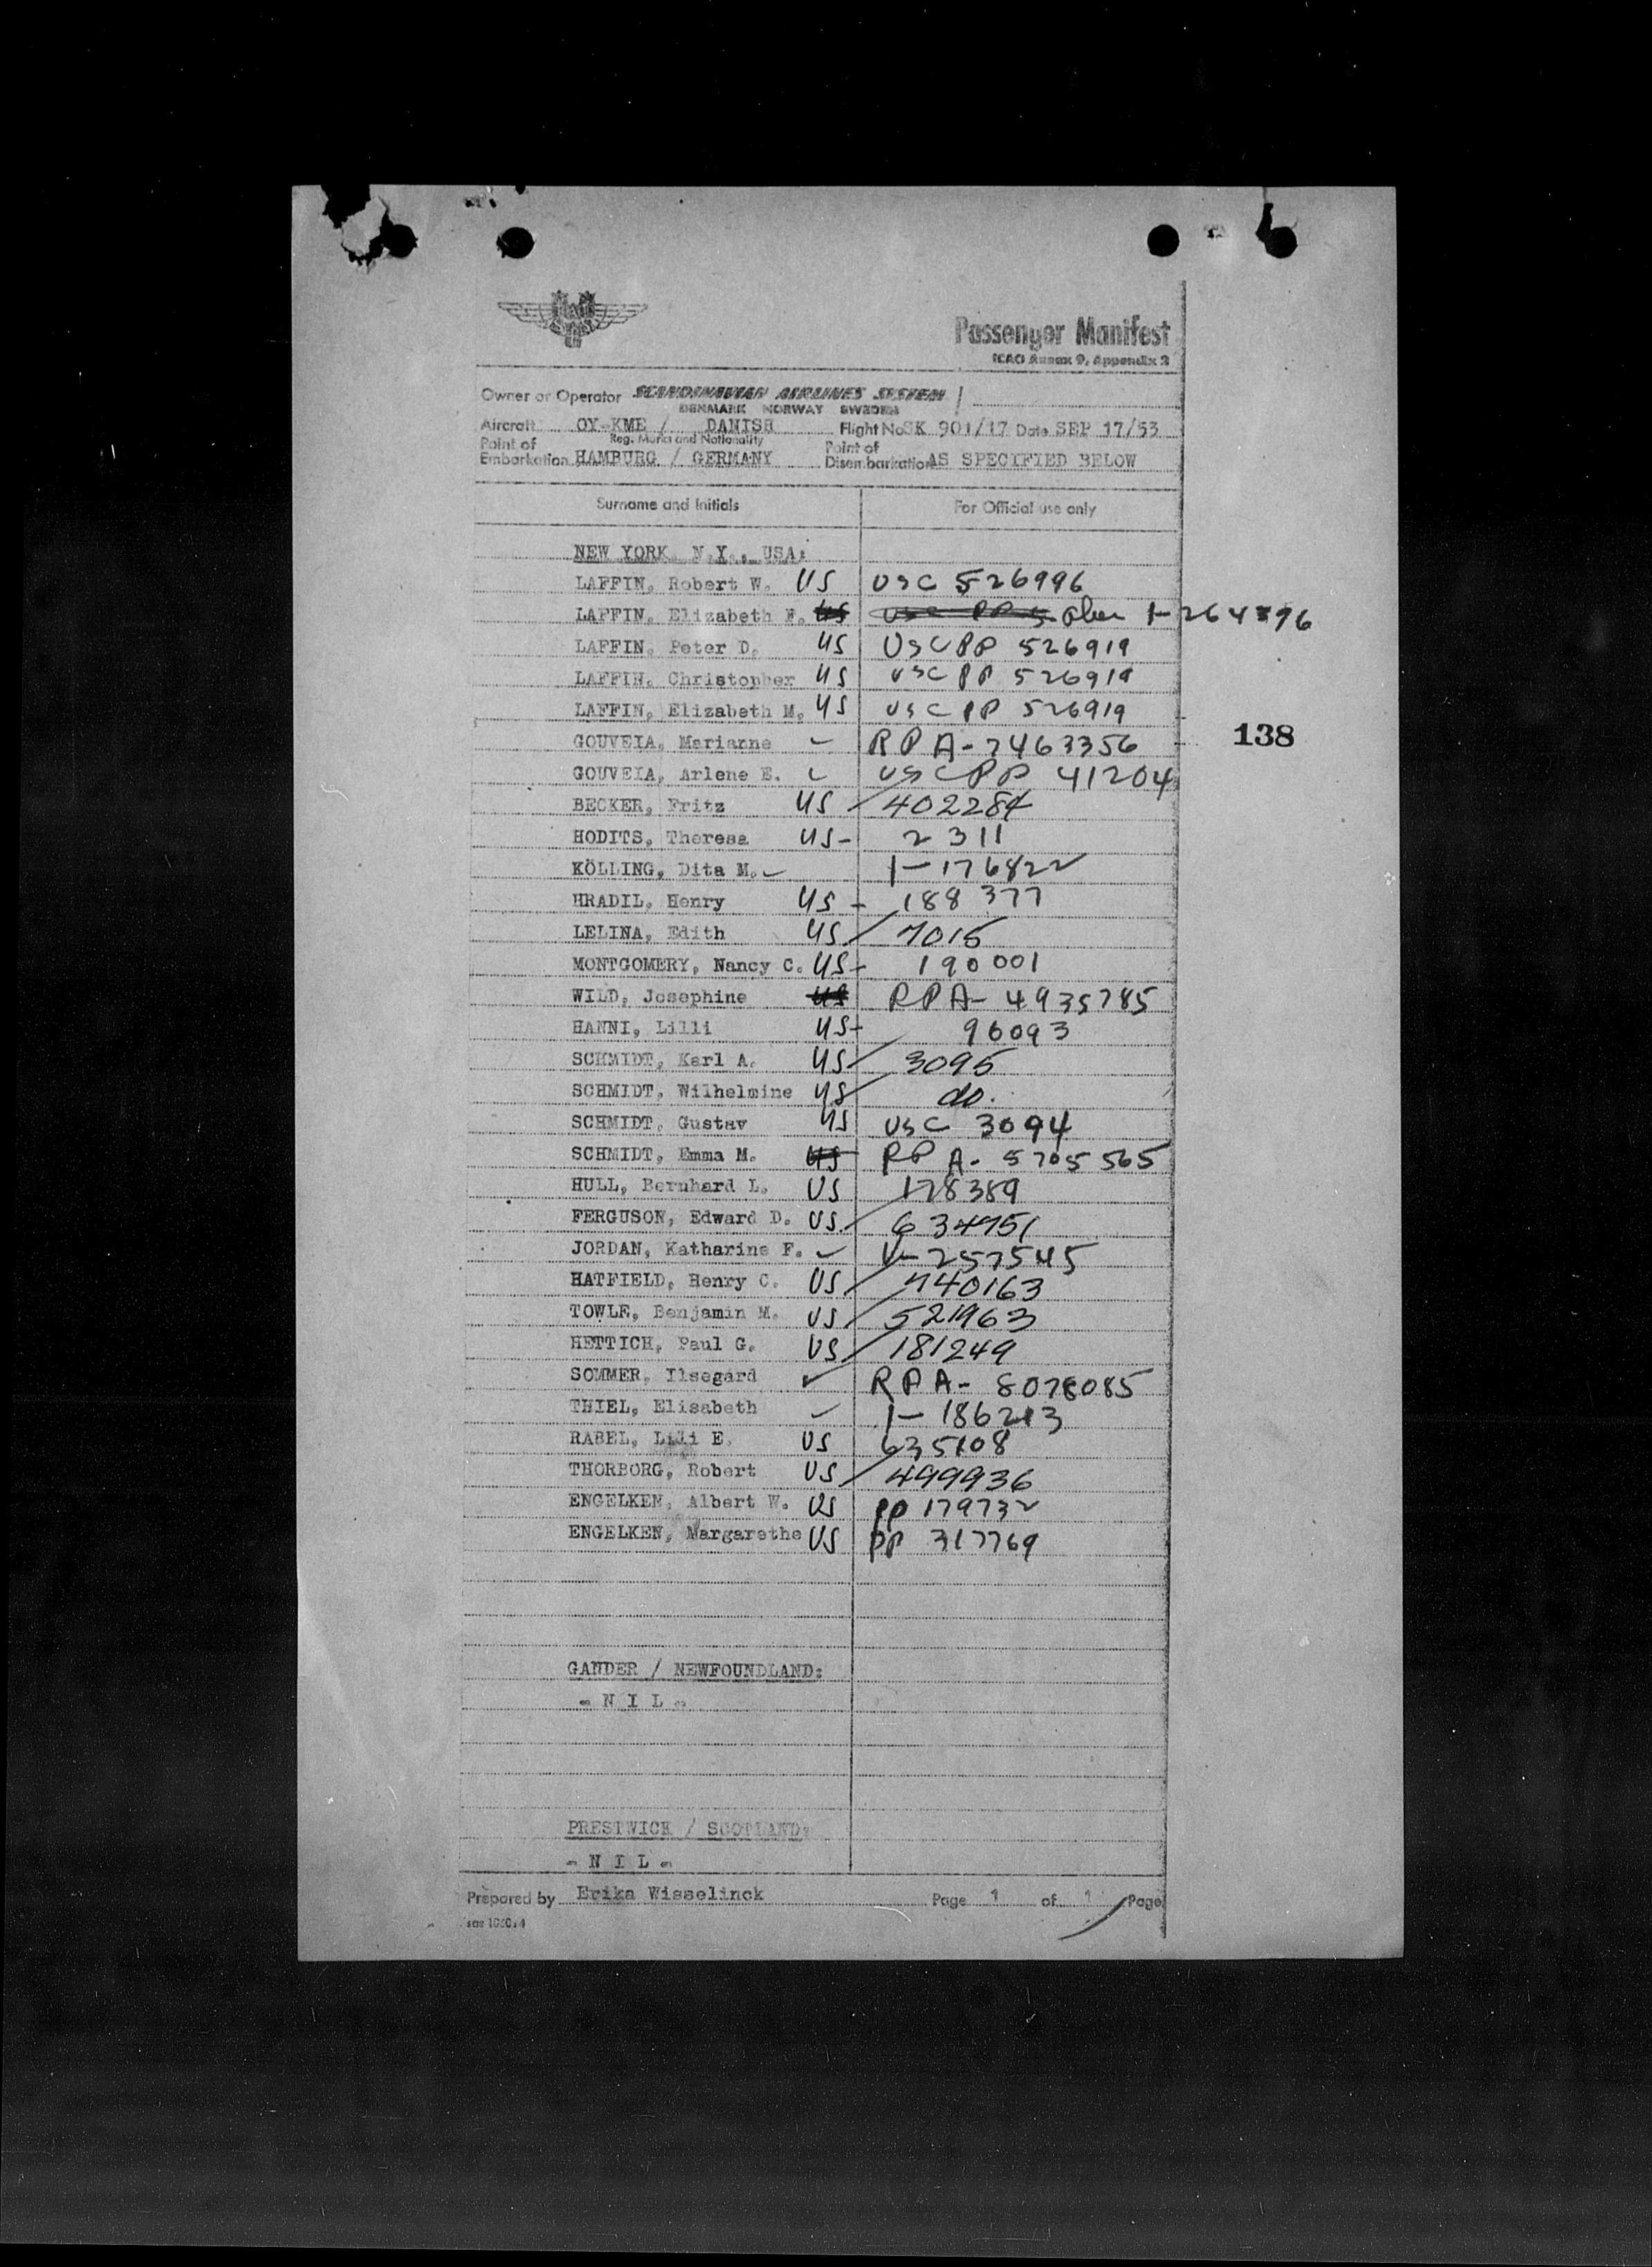 Passenger Manifest
ICAO Annex 9, Appendix 3
Owner or Operator SCANDINAVIAN AIRLINES SYSTEM
DENMARK NORWAY SWEDEN
Aircraft OY-KME / DANISH Flight No SK 901/17 Date SEP 17/53
Reg. Marks and Nationality
Point of Embarkation HAMBURG / GERMANY Point of Disembarkation AS SPECIFIED BELOW
Surname and Initials For Official use only
NEW YORK, N.Y., USA:
LAFFIN, Robert W. US USC 526996
LAFFIN, Elizabeth F. 1-264376
LAFFIN, Peter D. US USC PP 526919
LAFFIN, Christopher US USC PP 526919
LAFFIN, Elizabeth M. US USC PP 526919
138
GOUVEIA, Marianne ✓ RPA-7463356
GOUVEIA, Arlene E. ✓ USC PP 41204
BECKER, Fritz US / 402284
HODITS, Theresa US - 2311
KÖLLING, Dita M. ✓ 1-176822
HRADIL, Henry US - 188377
LELINA, Edith US / 7015
MONTGOMERY, Nancy C. US - 190001
WILD, Josephine US RPA-4935785
HANNI, Lilli US - 96093
SCHMIDT, Karl A. US / 3095
SCHMIDT, Wilhelmine US / do.
SCHMIDT, Gustav US USC 3094
SCHMIDT, Emma M. US RPA-5705565
HULL, Bernhard L. US 178389
FERGUSON, Edward D. US / 634751
JORDAN, Katharina F. ✓ V-257545
HATFIELD, Henry C. US / 740163
TOWLE, Benjamin M. US / 521963
HETTICH, Paul G. US / 181249
SOMMER, Ilsegard ✓ RPA-8078085
THIEL, Elisabeth ✓ 1-186213
RABEL, Lili E. US 635108
THORBORG, Robert US / 499936
ENGELKEN, Albert W. US PP 179732
ENGELKEN, Margarethe US PP 317769
GANDER / NEWFOUNDLAND:
- N I L -
PRESTWICK / SCOTLAND:
- N I L -
Prepared by Erika Wisselinck Page 1 of 1 Page